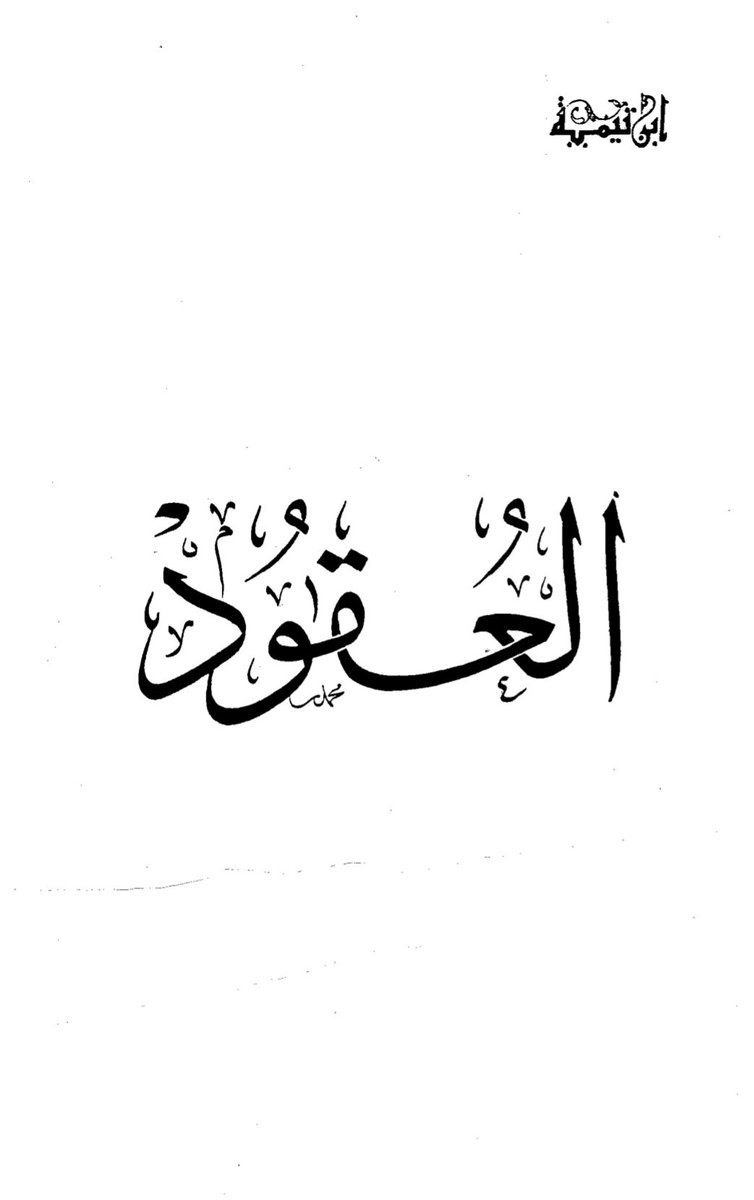 ابن تيمية
العُقُودْ
محمد